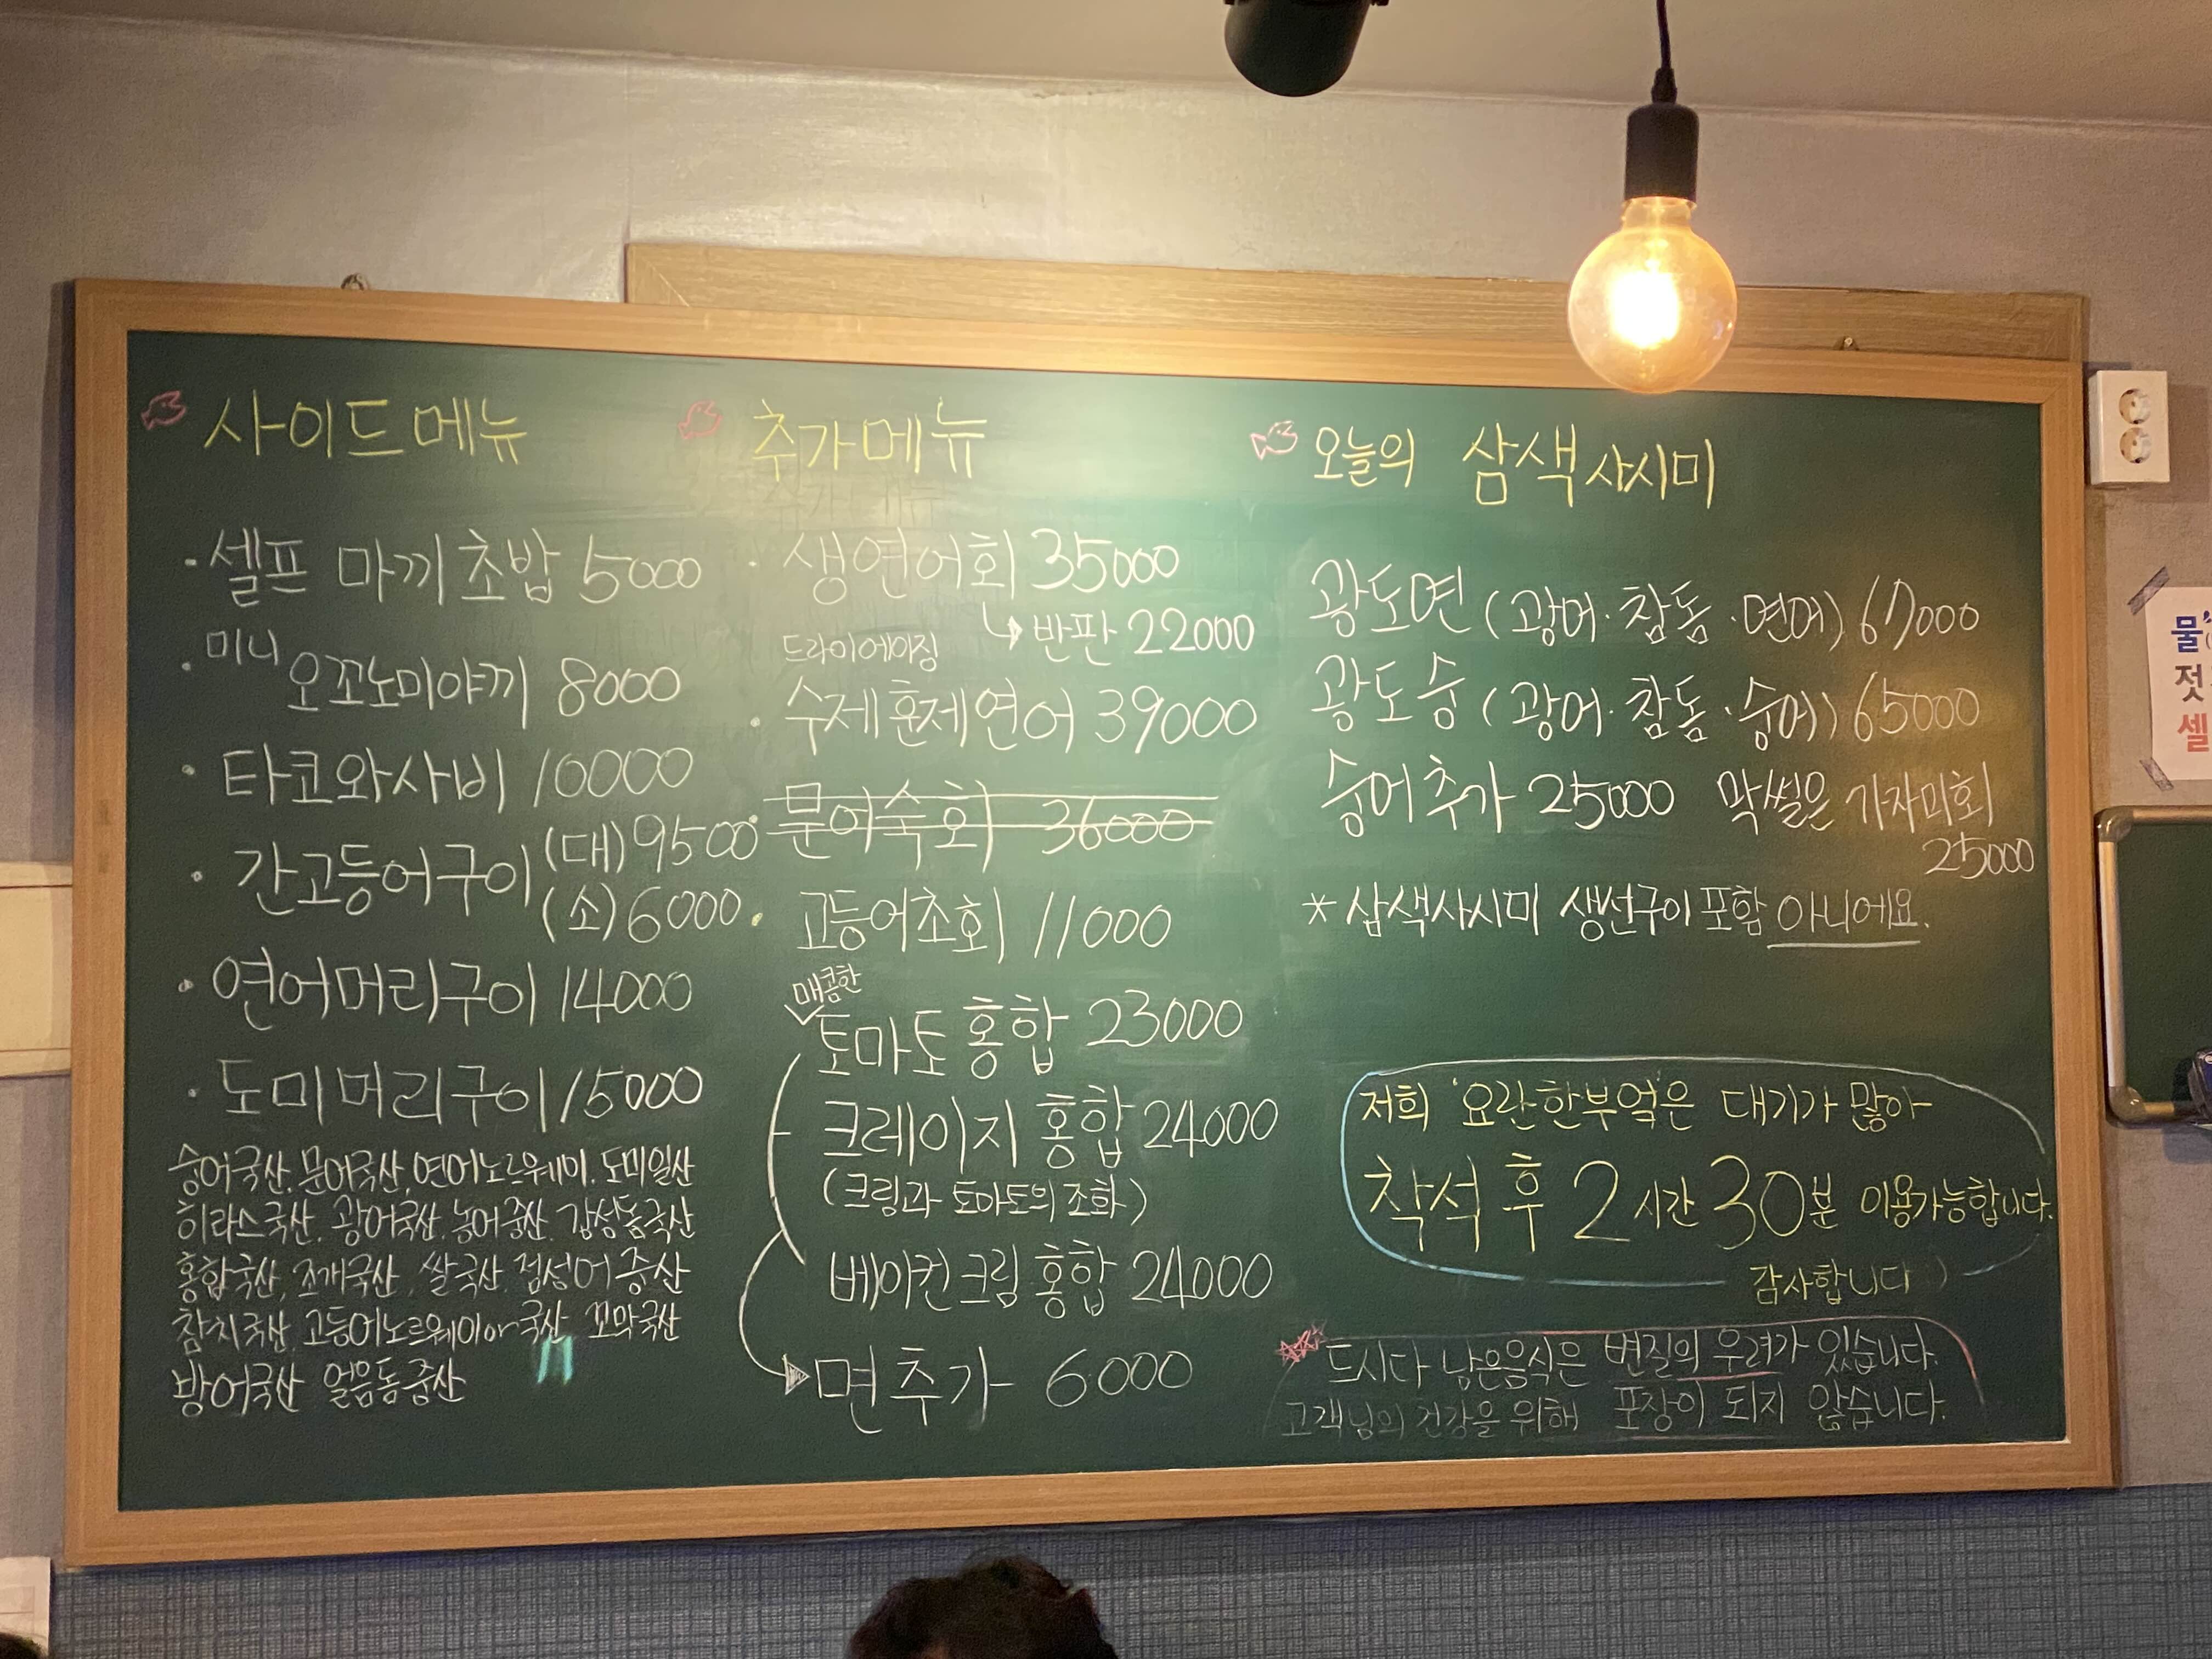 사이드메뉴
· 셀프 마끼초밥 5000
· 미니 오꼬노미야끼 8000
· 타코와사비 10000
· 간고등어구이 (대) 9500
(소) 6000
· 연어머리구이 14000
· 도미머리구이 15000
숭어국산. 문어국산, 연어노르웨이. 도미일산
히라스국산. 광어국산. 농어중산. 감성돔국산
홍합국산, 조개국산. 쌀국산. 점성어중산
참치국산. 고등어노르웨이아국산 꼬막국산
방어국산 얼음돔중산
추가메뉴
· 생연어회 35000
↳ 반판 22000
드라이에이징
· 수제훈제연어 39000
· 문어숙회 36000
· 고등어초회 11000
매콤한
토마토홍합 23000
크레이지 홍합 24000
(크림과 토마토의 조화)
베이컨크림홍합 24000
면추가 6000
오늘의 삼색사시미
광도연 (광어·참돔·연어) 67000
광도숭 (광어·참돔·숭어) 65000
숭어추가 25000 막썰은 가자미회
25000
* 삼색사시미 생선구이 포함 아니에요.
저희 '요란한부엌'은 대기가 많아
착석 후 2시간 30분 이용가능합니다.
감사합니다
드시다 남은음식은 변질의 우려가 있습니다.
고객님의 건강을 위해 포장이 되지 않습니다.
물
젓
셀